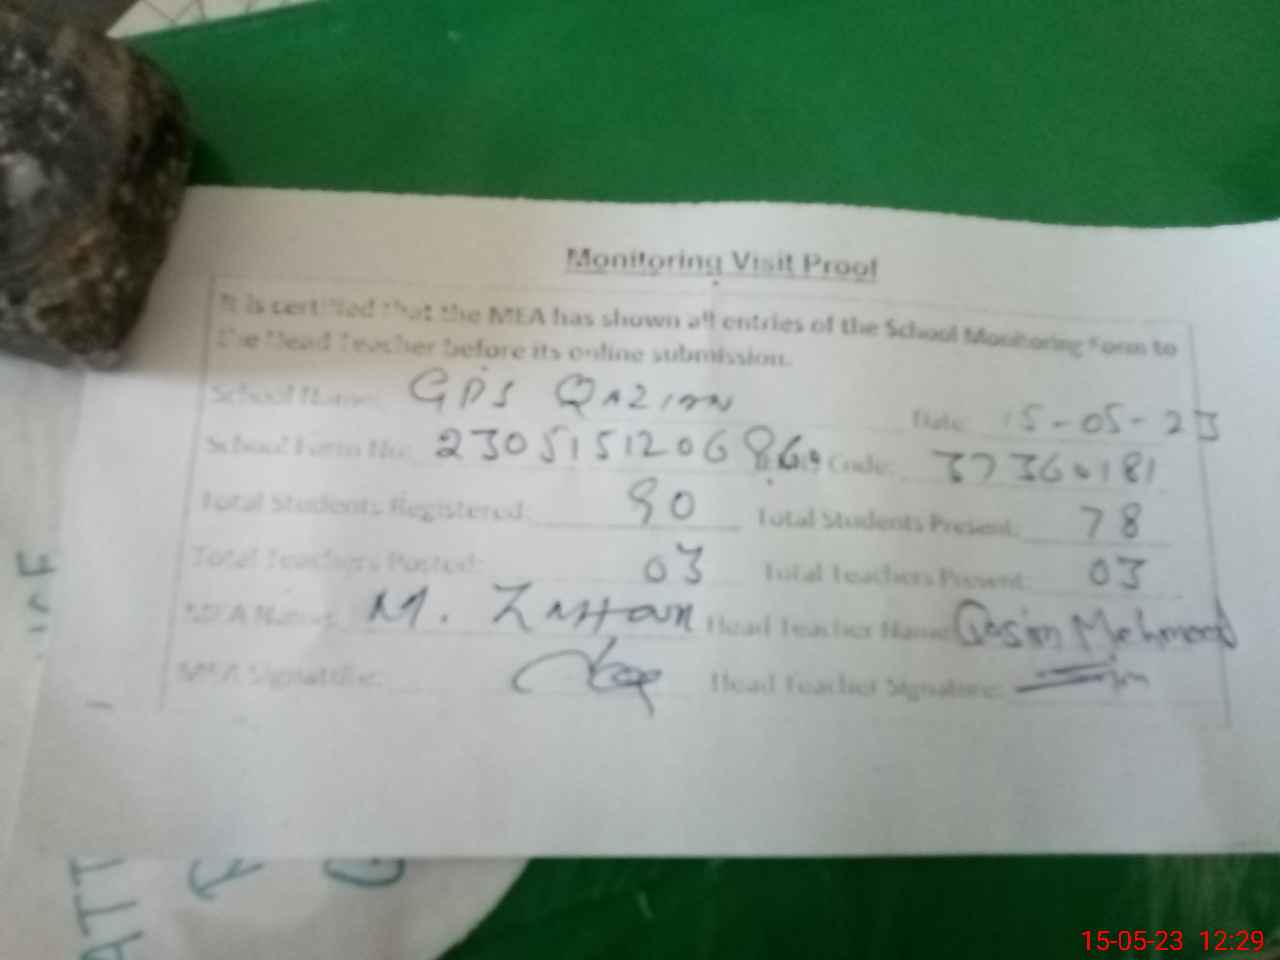 Monitoring Visit Proof
It is certified that the MEA has shown all entries of the School Monitoring Form to
the Head Teacher before its online submission.
School Name: GPS QAZIAN Date: 15-05-23
School Form No: 2305151206 Code: 37360181
Total Students Registered: 90 Total Students Present: 78
Total Teachers Posted: 03 Total Teachers Present: 03
MEA Name: M. Head Teacher Name: Qasim Mehmood
MEA Signature: Head Teacher Signature:
ATT
15-05-23 12:29